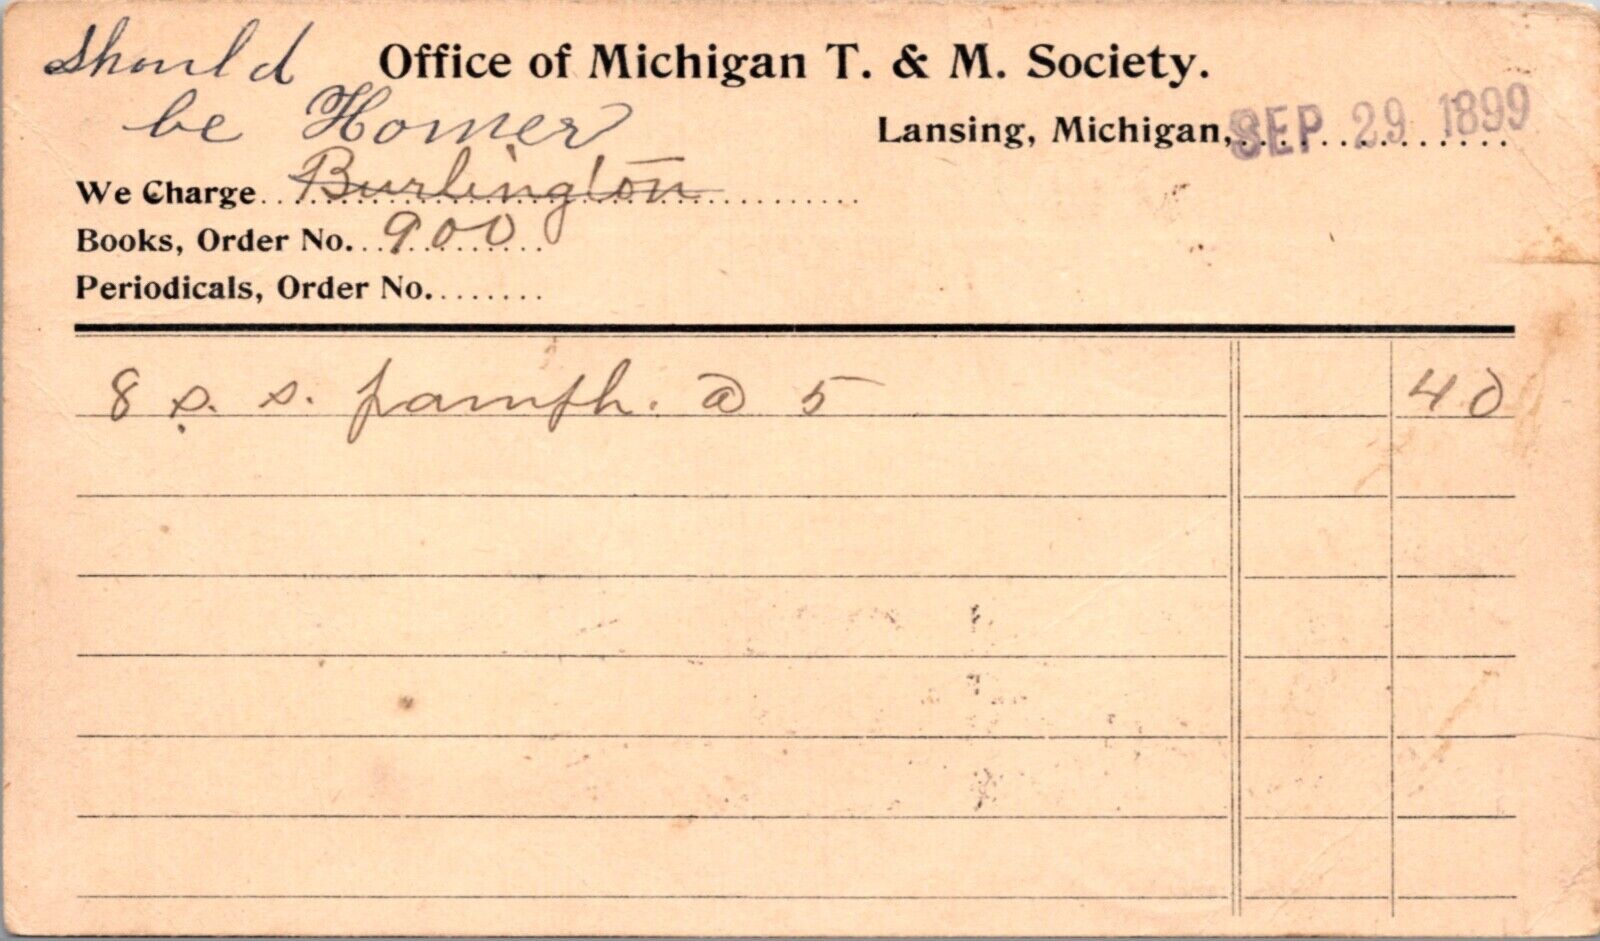 Should
be Homer
Office of Michigan T. & M. Society.
Lansing, Michigan, SEP 29 1899
We Charge Burlington
Books, Order No. 900
Periodicals, Order No.
8 s. s. pamph. @ 5 40